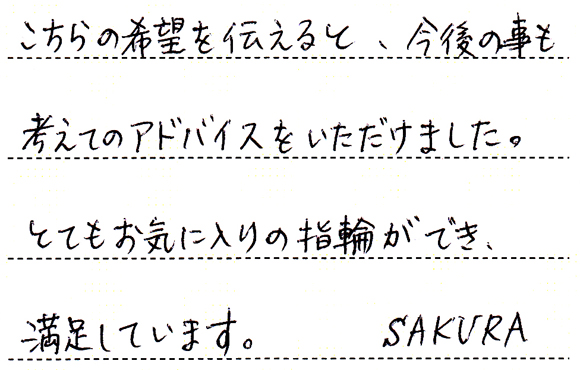 こちらの希望を伝えると、今後の事も
考えてのアドバイスをいただけました。
とてもお気に入りの指輪ができ、
満足しています。 SAKURA